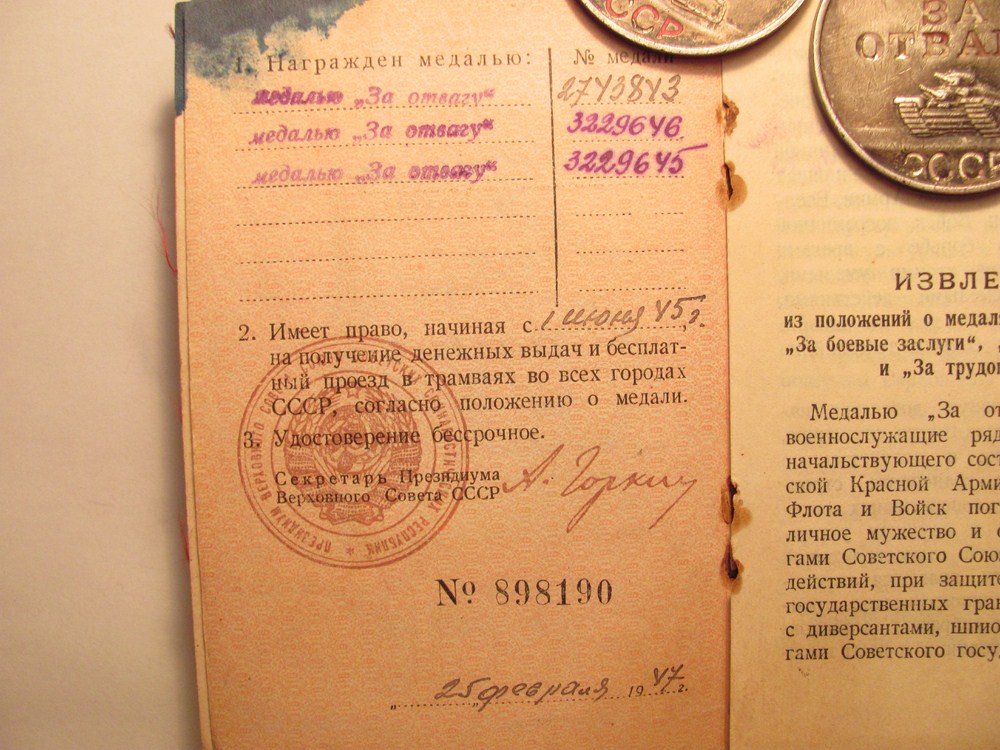 1. Награжден медалью:
№ медали
медалью „За отвагу“
2743843
медалью „За отвагу“
3229646
медалью „За отвагу“
3229645
2. Имеет право, начиная с 1 июня 45 г.
на получение денежных выдач и бесплат-
ный проезд в трамваях во всех городах
СССР, согласно положению о медали.
3. Удостоверение бессрочное.
Секретарь Президиума
Верховного Совета СССР
А. Горкин
№ 898190
„25 февраля 1947 г.
ПРЕЗИДИУМ ВЕРХОВНОГО
РЕСПУБЛИК
СССР
ЗА
ОТВАГ
СССР
ИЗВЛЕ
из положений о медаля
„За боевые заслуги“,
и „За трудо
Медалью „За от
военнослужащие ряд
начальствующего сост
ской Красной Арми
Флота и Войск пог
личное мужество и
гами Советского Сою
действий, при защите
государственных гран
с диверсантами, шпио
гами Советского госу